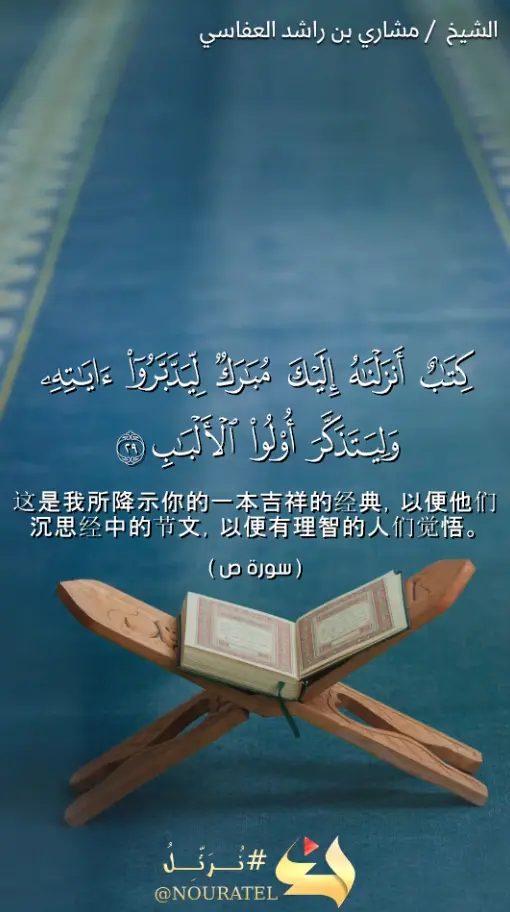 الشيخ / مشاري بن راشد العفاسي
كِتَٰبٌ أَنزَلْنَٰهُ إِلَيْكَ مُبَٰرَكٌ لِّيَدَّبَّرُوٓا۟ ءَايَٰتِهِۦ
وَلِيَتَذَكَّرَ أُو۟لُوا۟ ٱلْأَلْبَٰبِ ٢٩
这是我所降示你的一本吉祥的经典, 以便他们
沉思经中的节文, 以便有理智的人们觉悟。
( سورة ص )
#نُــرَتِّــلُ
@NOURATEL